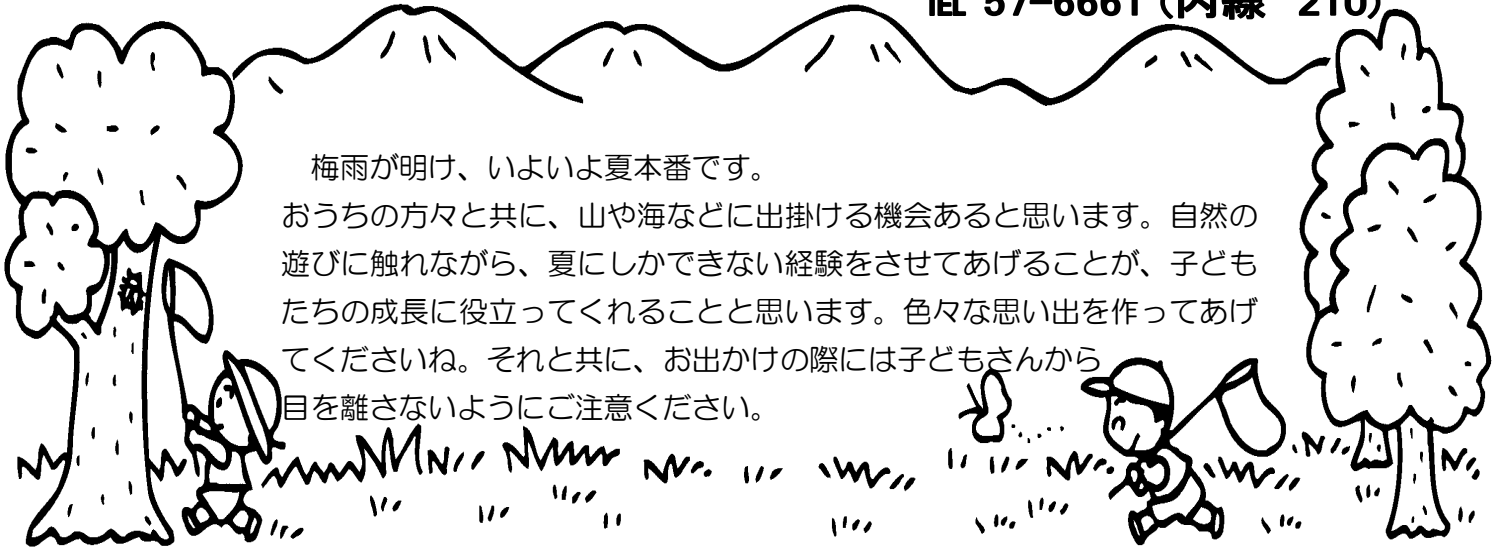 ℡ 57-6661（内線 210）
　梅雨が明け、いよいよ夏本番です。
おうちの方々と共に、山や海などに出掛ける機会あると思います。自然の
遊びに触れながら、夏にしかできない経験をさせてあげることが、子ども
たちの成長に役立ってくれることと思います。色々な思い出を作ってあげ
てくださいね。それと共に、お出かけの際には子どもさんから
目を離さないようにご注意ください。